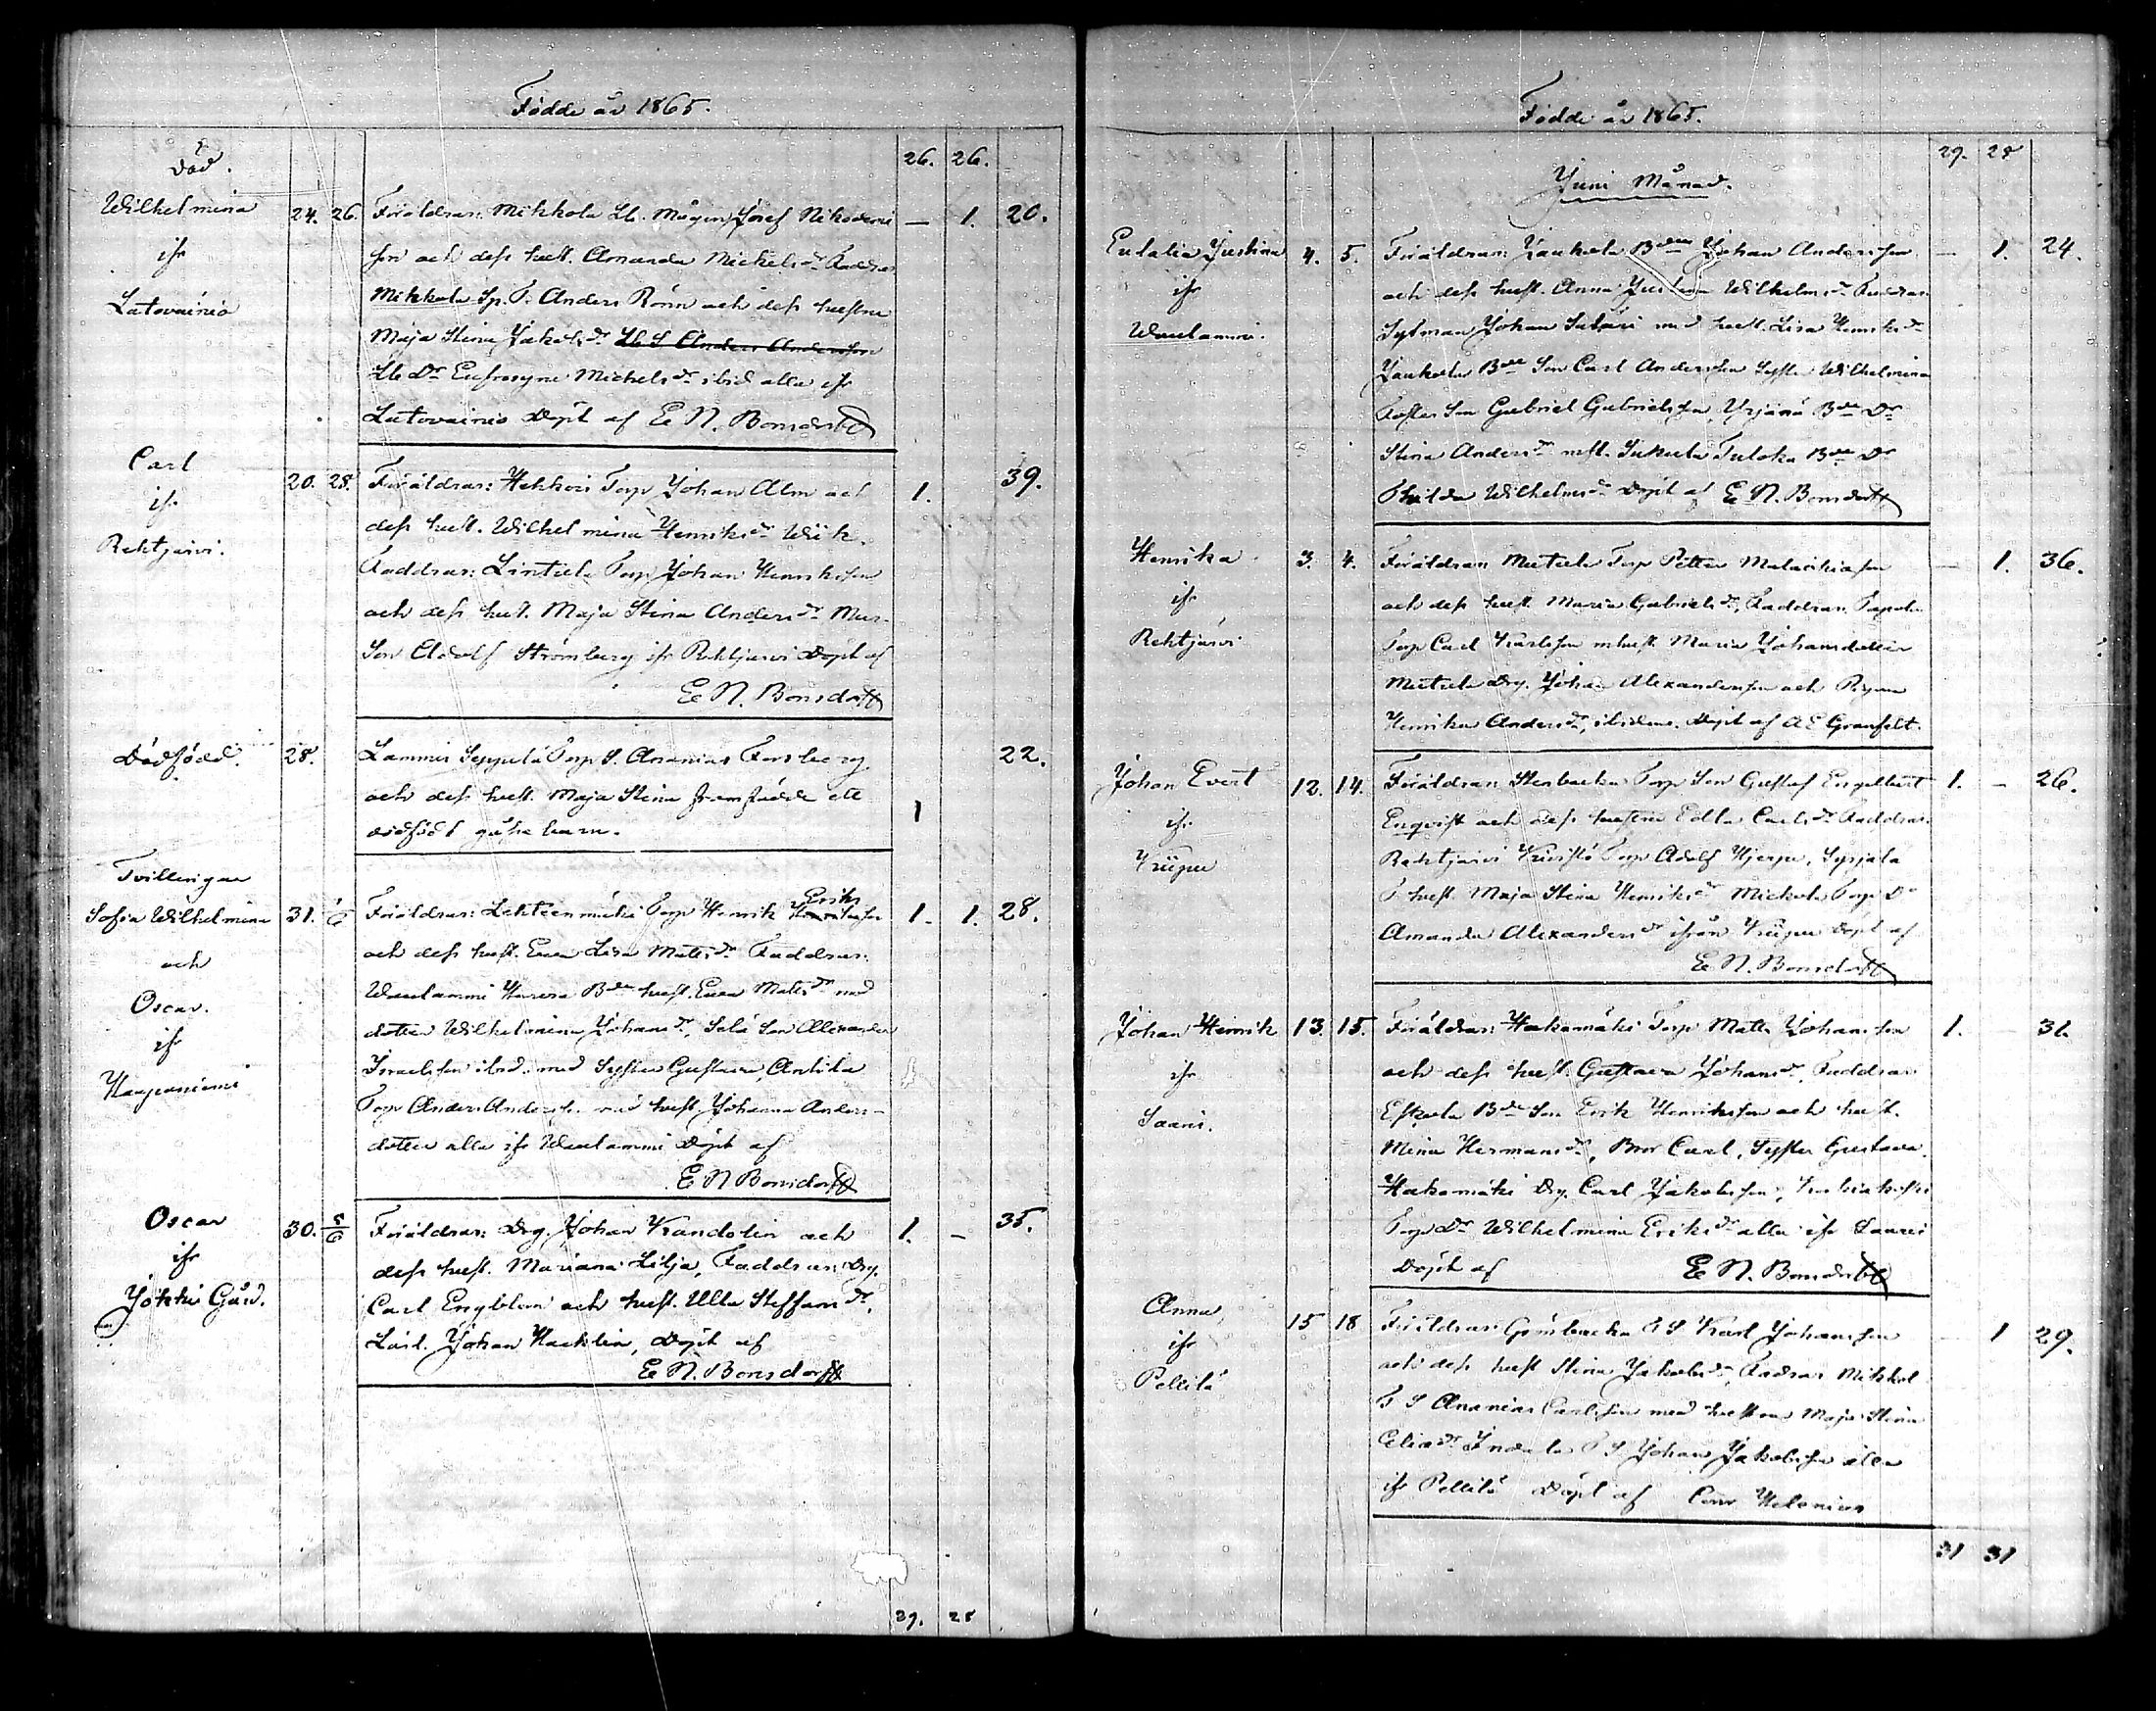 Födde år 1865.
26. 26.
död.
Wilhelmina
ifr
Latovainio
24. 26.
Föräldrar: Mikkola Lb. Mågen Josef Nikodemi
son och dess hust. Amanda Michelsdr Faddrar
Mikkola Sp. T. Anders Rönn och dess hustru
Maja Stina Jakobsdr Lb S Anders Andersson
Lb Dr Eufrosyne Michelsdr ibid alla ifr
Latovainio Döpt af E N. Bonsdorff
— 1. 20.
Carl
ifr
Rehtijärvi.
20. 28.
Föräldrar: Torp Johan Alm och
dess hust. Wilhelmina Henriksdr Wiik.
Faddrar: Lintula Torp Johan Henriksson
och dess hust. Maja Stina Andersdr
Son Adolf Strömberg ifr Rehtijärvi Döpt af
E N. Bonsdorff
1. 39.
Dödfödd.
28.
Lammi Seppälä Torp S. Ananias Forsberg
och dess hust. Maja Stina framfödde ett
dödfödt barn.
1 22.
Tvillingar
Sofia Wilhelmina
och
Oscar.
ifr
Haapaniemi
31. 1/6
Föräldrar: Lehteenmäki Torp Henrik Eriks
och dess hust. Eva Lisa Matsdr Faddrar:
Waulammi Bde hust. Eva Matsdr med
dotter Wilhelmina Johansdr, Salo Son Alexander
Israelsson ibid. med Syster Gustava, Antila
Torp Anders Andersson med hust. Johanna Anders-
dotter alla ifr Waulammi Döpt af
E N Bonsdorff
1. 1. 28.
Oscar
ifr
Jokkis Gård.
30. 5/6
Föräldrar: Drg. Johan Kandolin och
dess hust. Mariana Lilja, Faddrar: Drg.
Carl Engblom och hust. Ulla Steffansdr,
Lärl. Johan Hacklin, Döpt af
E N. Bonsdorff
1. — 35.
29. 28
Födde år 1865.
29. 28
Juni Månad.
Eulalia Justina
ifr
Waulammi.
4. 5.
Föräldrar: Jaukola Bden Johan Andersson
och dess hust. Anna Justina Wilhelmsdr Faddrar
Sytman Johan med hust. Lisa Henriksdr
Jaukola Bde Son Carl Andersson Syster Wilhelmina
Foster Son Gabriel Gabrielsson, Urjänä Bde Dr
Stina Andersdr Bde Dr
Wilhelmsdr Döpt af E N. Bonsdorff
— 1. 24.
Henrika
ifr
Rehtijärvi
3. 4.
Föräldrar Torp Petter Malakiasson
och dess hust. Maria Gabrielsdr, Faddrar: Papola
Torp Carl Karlsson m hust. Maria Johansdotter
Drg. Johan Alexandersson och Pigan
Henrika Andersdr, ibidem. Döpt af A E Granfelt.
— 1. 36.
Johan Evert
ifr
Kiipu
12. 14.
Föräldrar: Stenbacka Torp Son Gustaf Engelbert
Enqvist och dess hustru Edla Carlsdr Faddrar:
Rehtijärvi Torp Adolf Hjerpe,
T hust. Maja Stina Henriksdr Mickola Torp Dr
Amanda Alexandersdr ifrån Kiipu döpt af
E. N. Bonsdorff
1. — 26.
Johan Henrik
ifr
Saari.
13. 15.
Föräldrar: Hakamäki Torp Matts Johansson
och dess hust. Gustava Johansdr, Faddrar
Eskola Bde Son Erik Henriksson och hust.
Mina Hermansdr, Bror Carl, Syster Gustava,
Hakamäki Drg. Carl Jakobsson,
Torp Dr Wilhelmina Eriksdr alla ifr Saari
Döpt af E N. Bonsdorff
1. 31.
Anna
ifr
Pellilä
15 18
Föräldrar: Grönbacka T S Karl Johansson
och dess hust Stina Jakobsdr, Fadrar Mikkol
T S Ananias Carlsson med hustru Maja Stina
Eliædr T S Johan Jakobsson alla
ifr Pellilä Döpt af Conr Helenius
— 1 29.
31 31